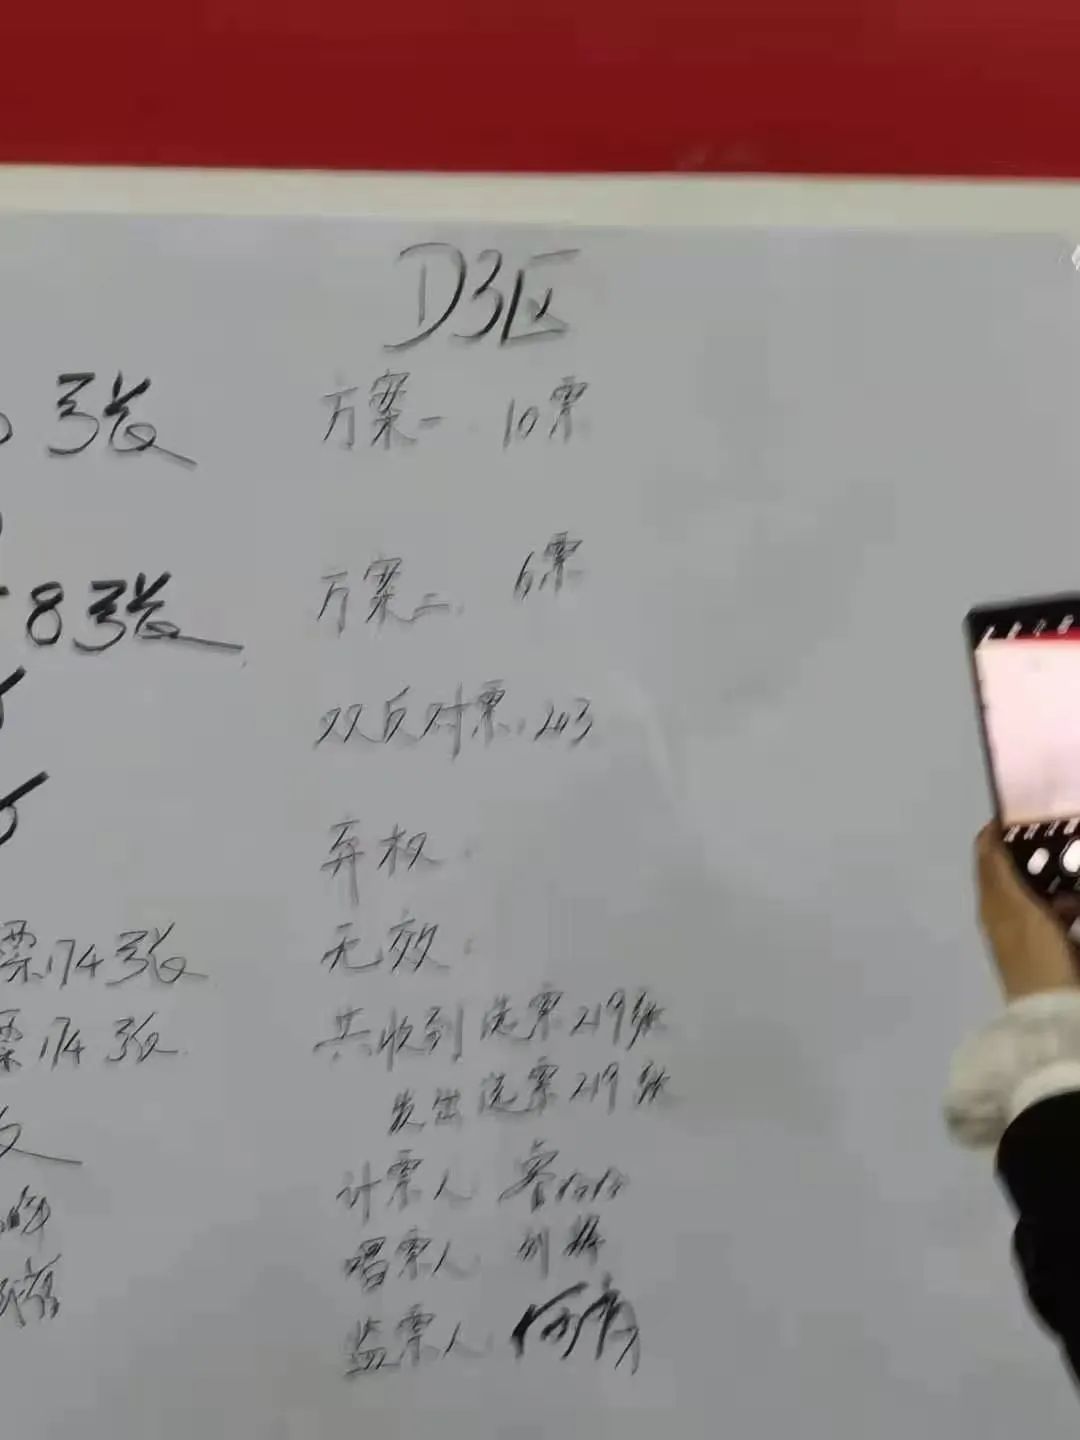 D3区
张
方案一. 10票
8张
方案二. 6票
双反对票. 203
弃权.
无效.
票174张
共收到选票219张
票174张
发出选票219张
计票人
唱票人
监票人